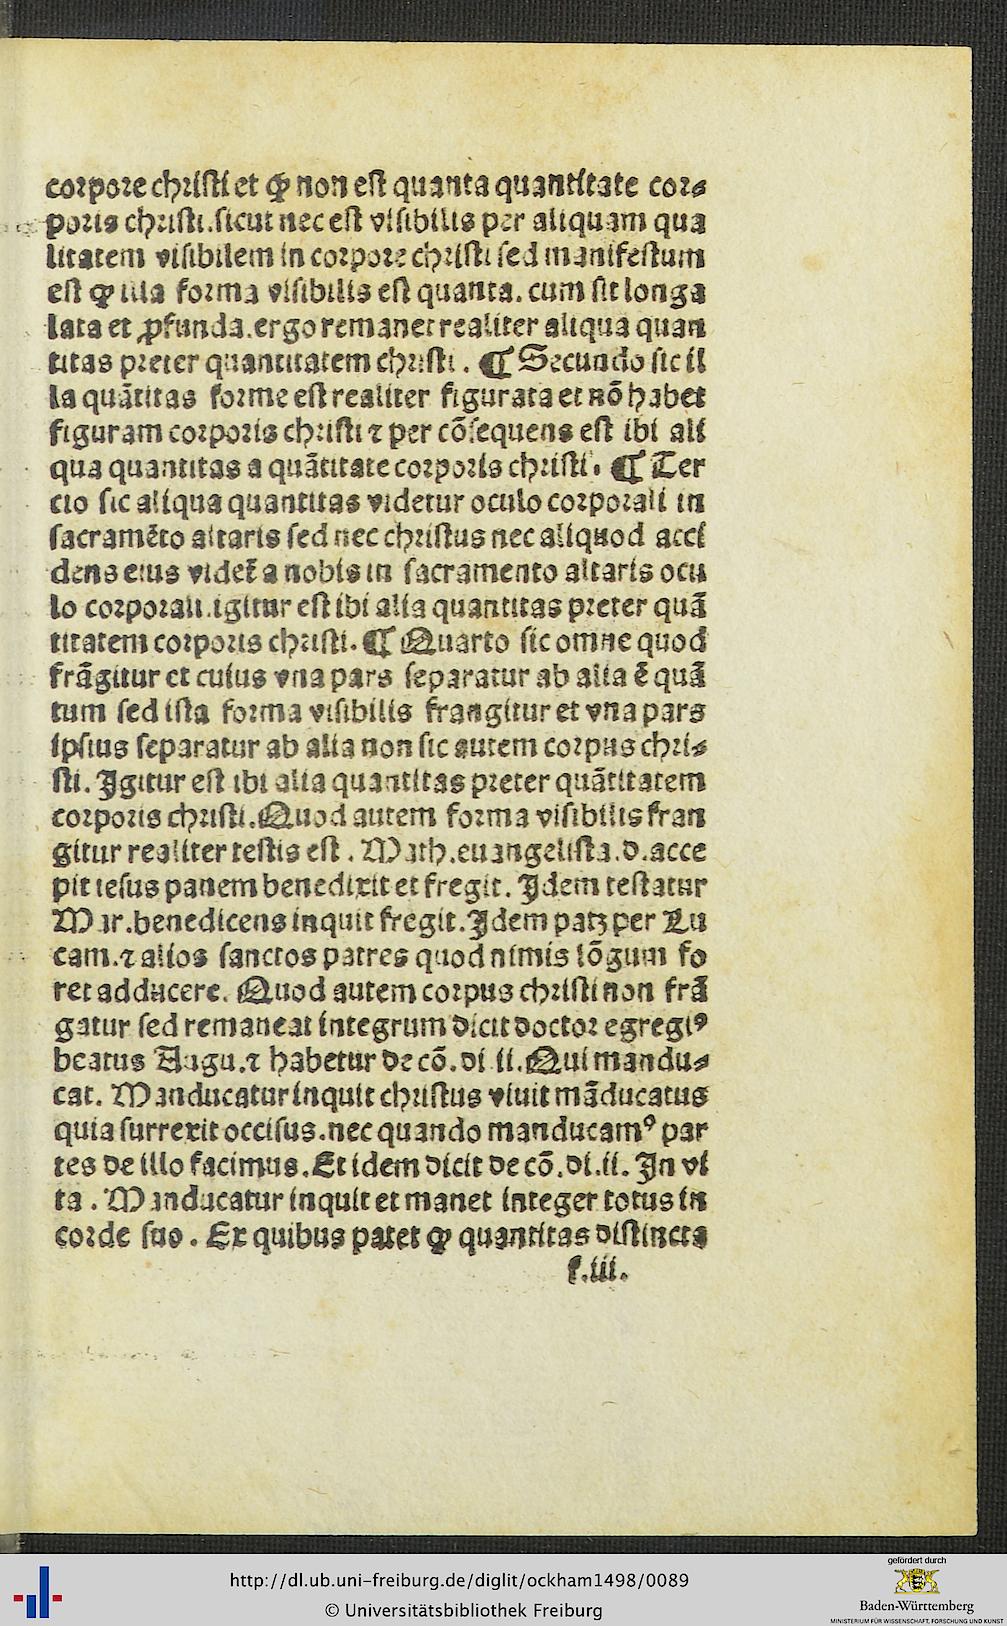 corpore christi et ꝙ non est quanta quantitate cor⸗
poris christi.sicut nec est visibilis per aliquam qua
litatem visibilem in corpore christi sed manifestum
est ꝙ illa forma visibilis est quanta. cum sit longa
lata et ꝓfunda.ergo remanet realiter aliqua quan
titas preter quantitatem christi . ¶ Secundo sic il
la quãtitas forme est realiter figurata et nõ habet
figuram corporis christi ⁊ per cõsequens est ibi ali
qua quantitas a quãtitate corporis christi. ¶ Ter
cio sic aliqua quantitas videtur oculo corporali in
sacramẽto altaris sed nec christus nec aliquod acci
dens eius videt᷑ a nobis in sacramento altaris ocu
lo corporali.igitur est ibi alia quantitas preter quã
titatem corporis christi. ¶ Quarto sic omne quod
frãgitur et cuius vna pars separatur ab alia ẽ quã
tum sed ista forma visibilis frangitur et vna pars
ipsius separatur ab alia non sic autem corpus chri⸗
sti. Igitur est ibi alia quantitas preter quãtitatem
corporis christi. Quod autem forma visibilis fran
gitur realiter testis est . Math.euangelista.d.acce
pit iesus panem benedixit et fregit. Idem testatur
Mar.benedicens inquit fregit. Idem patꝫ per Lu
cam.⁊ alios sanctos patres quod nimis lõgum fo
ret adducere. Quod autem corpus christi non frã
gatur sed remaneat integrum dicit doctor egregiꝰ
beatus Augu.⁊ habetur de cõ.di.ii. Qui mandu⸗
cat. Manducatur inquit christus viuit mãducatus
quia surrexit occisus.nec quando manducamꝰ par
tes de illo facimus. Et idem dicit de cõ.di.ii. In vi
ta . Manducatur inquit et manet integer totus in
corde suo . Ex quibus patet ꝙ quantitas distincta
f.iii.
http://dl.ub.uni-freiburg.de/diglit/ockham1498/0089
© Universitätsbibliothek Freiburg
gefördert durch
Baden-Württemberg
MINISTERIUM FÜR WISSENSCHAFT, FORSCHUNG UND KUNST